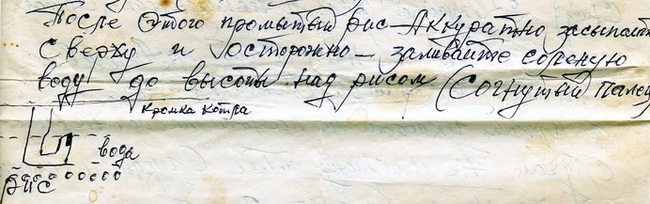 После этого промытый рис - Аккуратно засыпайте
Сверху и осторожно - заливайте соленую
воду до высоты над рисом (Согнутый палец
Кромка котла
вода
рис